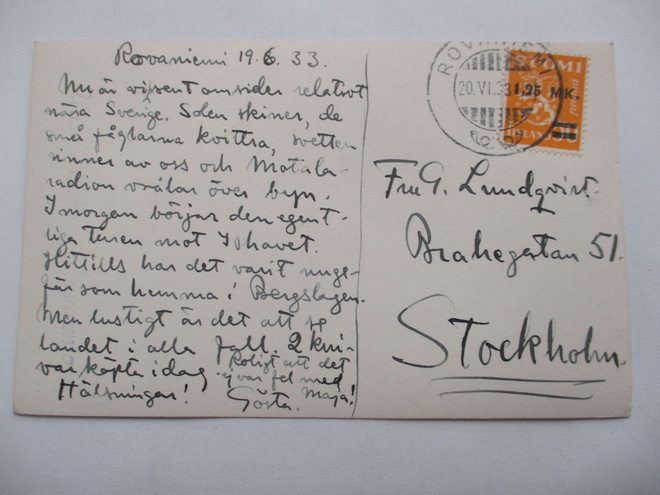 Rovaniemi 19.6.33.
Nu är vi sent omsider relativt
nära Sverige. Solen skiner, de
små fåglarna kvittra, svetten
rinner av oss och Motala-
radion vrålar över byn.
I morgon börjar den egent-
liga turen mot Ishavet.
Hittills har det varit unge-
fär som hemma i Bergslagen.
Men lustigt är det att se
landet i alla fall. 2 kni-
var köpta i dag
Roligt att det
ej var fel med
Maja!
Hälsningar! Gösta.
ROVANIEMI
20.VI.33
SUOMI
1,25 MK.
FINLAND
Fru G. Lundqvist
Brahegatan 51.
Stockholm